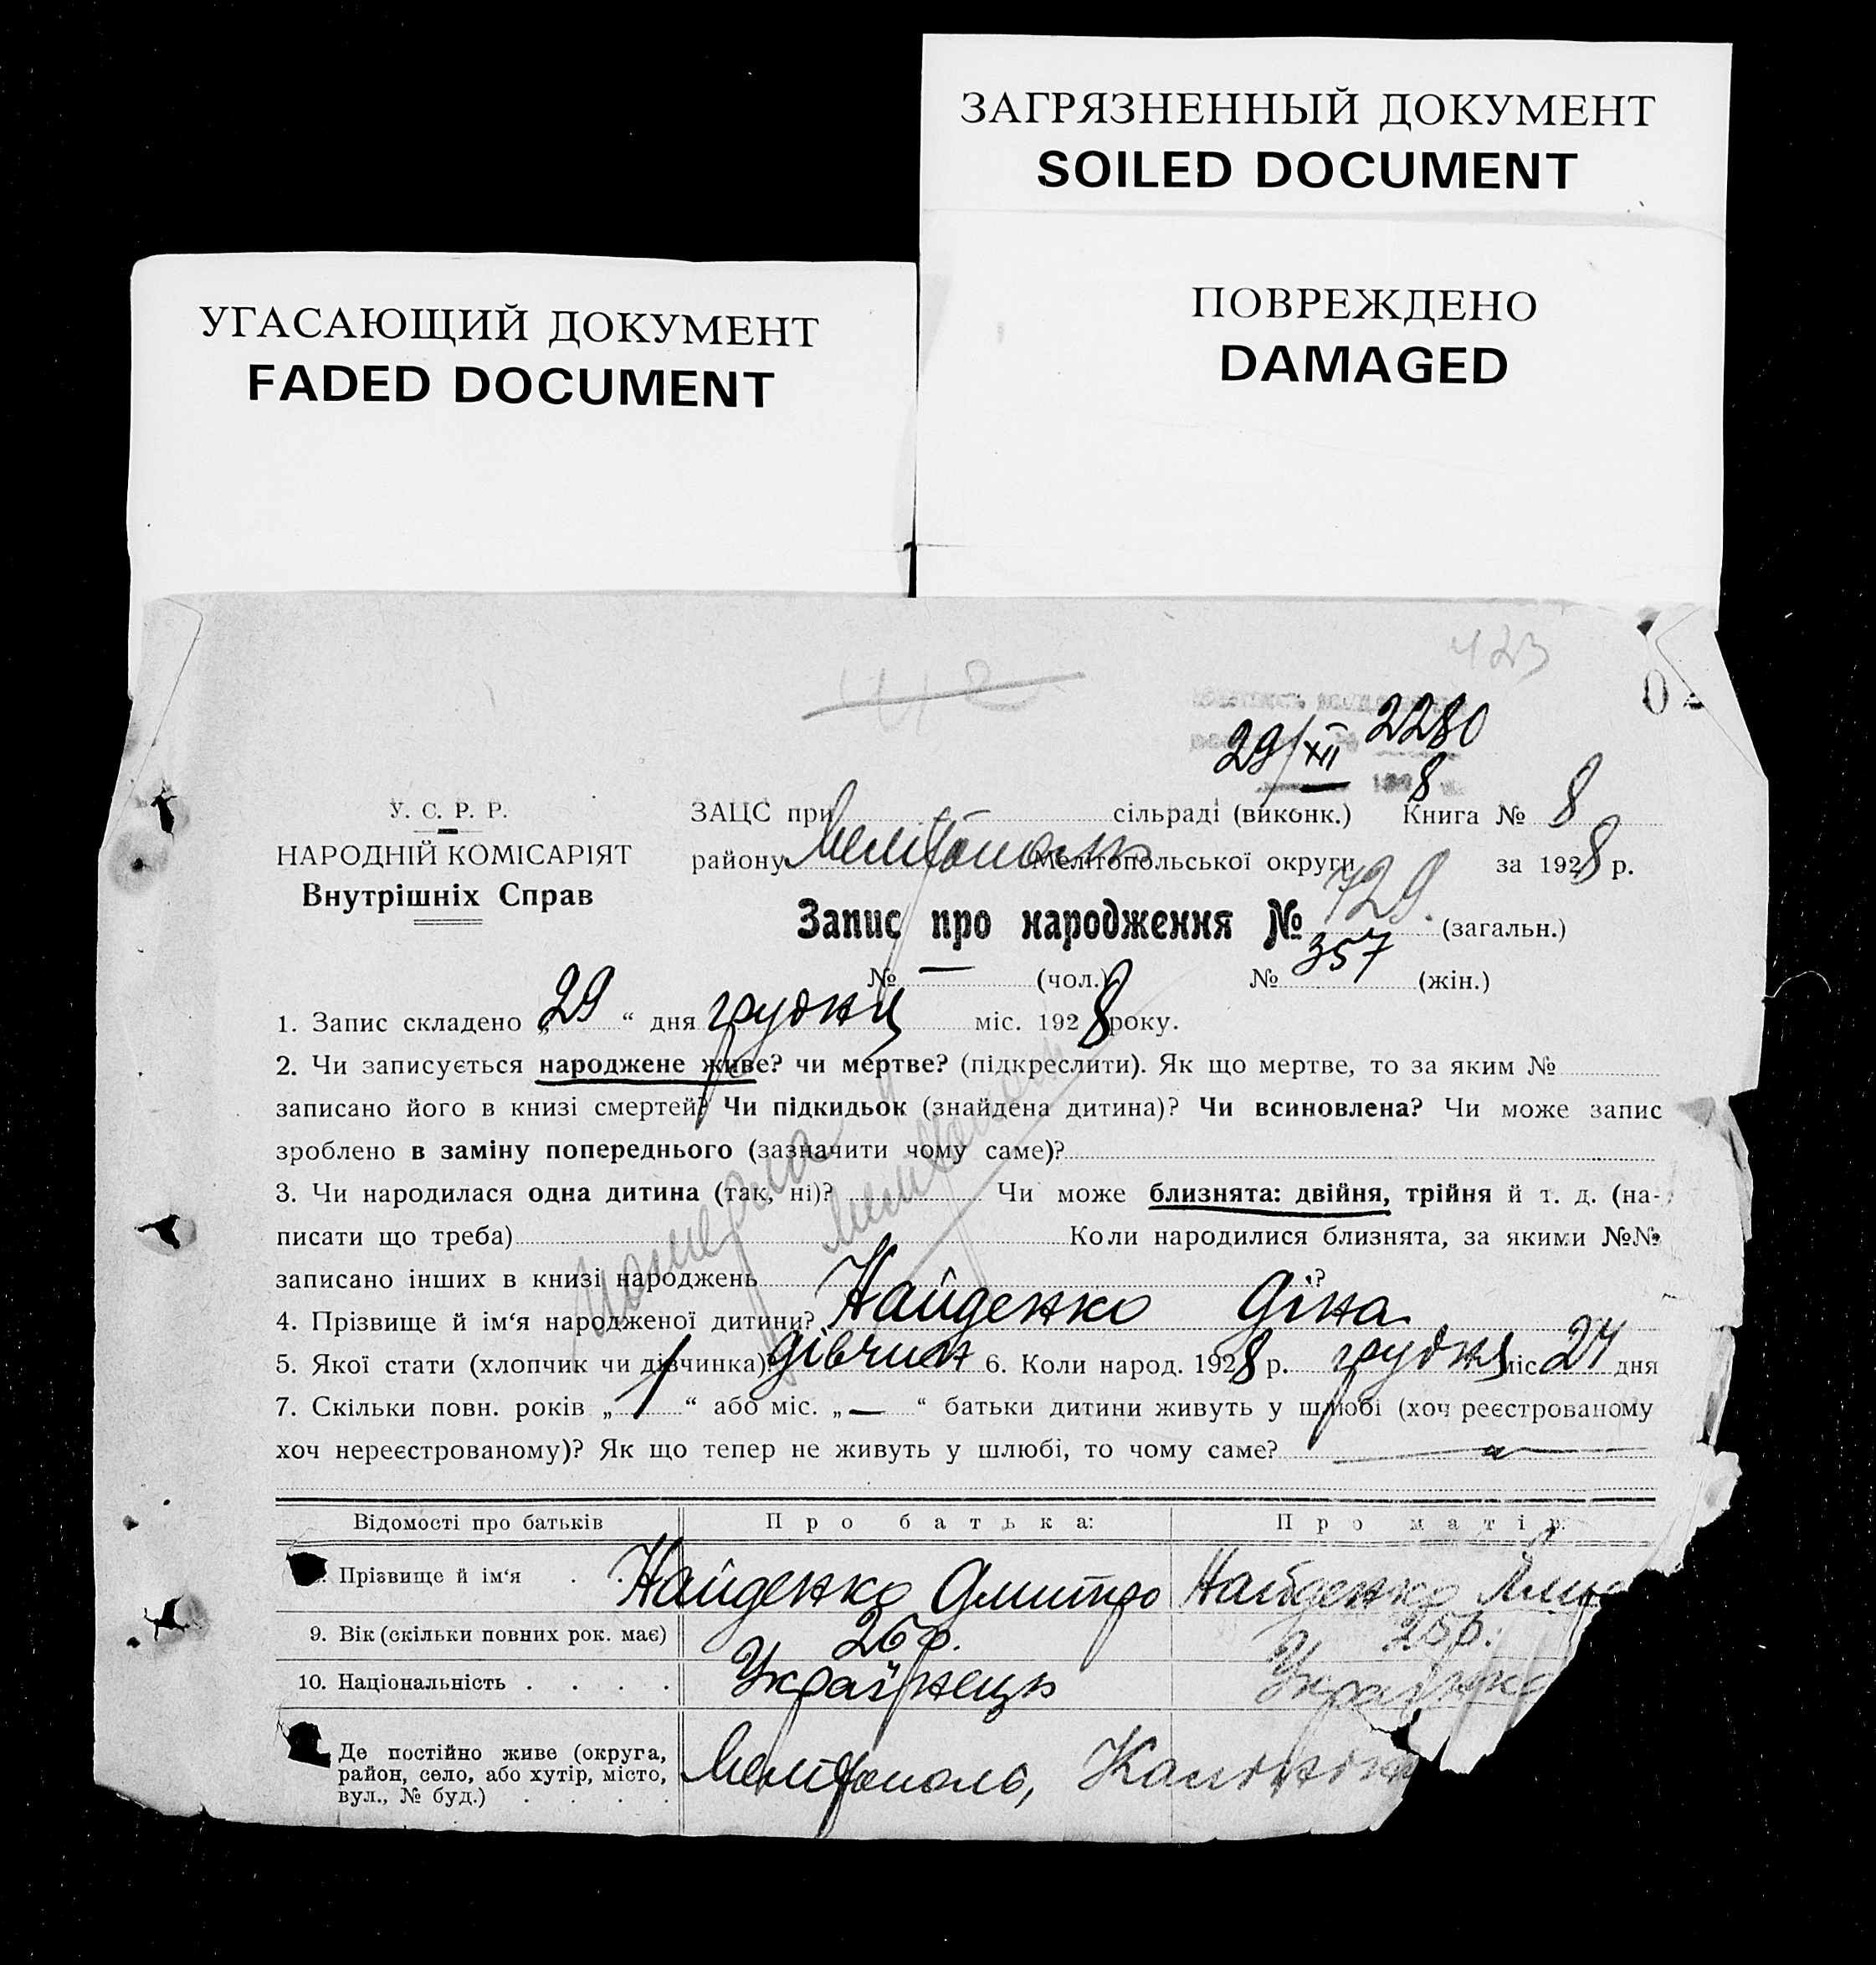 ЗАГРЯЗНЕННЫЙ ДОКУМЕНТ
SOILED DOCUMENT
ПОВРЕЖДЕНО
DAMAGED
УГАСАЮЩИЙ ДОКУМЕНТ
FADED DOCUMENT
423
29/XII 2280
8
У. С. Р. Р.
НАРОДНІЙ КОМІСАРІЯТ
Внутрішніх Справ
ЗАЦС при сільраді (виконк.) Книга № 8
району Мелітополь Мелітопольської округи за 1928 р.
Запис про народження № 729. (загальн.)
№ — (чол.) № 357 (жін.)
1. Запис складено „29“ дня грудня міс. 1928 року.
2. Чи записується народжене живе? чи мертве? (підкреслити). Як що мертве, то за яким №
записано його в книзі смертей? Чи підкидьок (знайдена дитина)? Чи всиновлена? Чи може запис
зроблено в заміну попереднього (зазначити чому саме)?
3. Чи народилася одна дитина (так, ні)? Чи може близнята: двійня, трійня й т. д. (на-
писати що треба) Коли народилися близнята, за якими №№
записано інших в книзі народжень ?
4. Прізвище й ім‘я народженої дитини? Найденко Діна
5. Якої стати (хлопчик чи дівчинка)? дівчин 6. Коли народ. 1928 р. грудня міс 24 дня
7. Скільки повн. років „1“ або міс. „—“ батьки дитини живуть у шлюбі (хоч реєстрованому
хоч нереєстрованому)? Як що тепер не живуть у шлюбі, то чому саме?
Відомості про батьків Про батька: Про матір:
Прізвище й ім‘я Найденко Дмитро Найденко
9. Вік (скільки повних рок. має) 26 р. 25 р.
10. Національність Українець Українка
Де постійно живе (округа,
район, село, або хутір, місто,
вул., № буд.) Мелітополь,